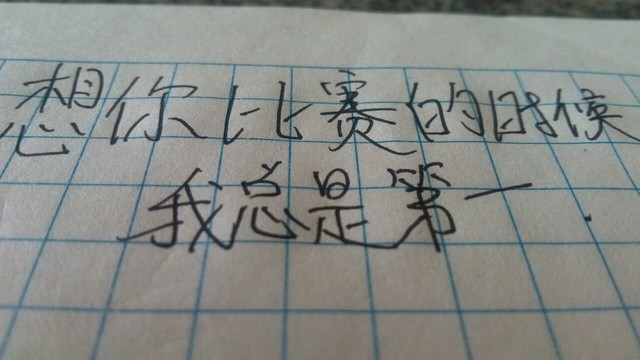 想你比赛的时候
我总是第一